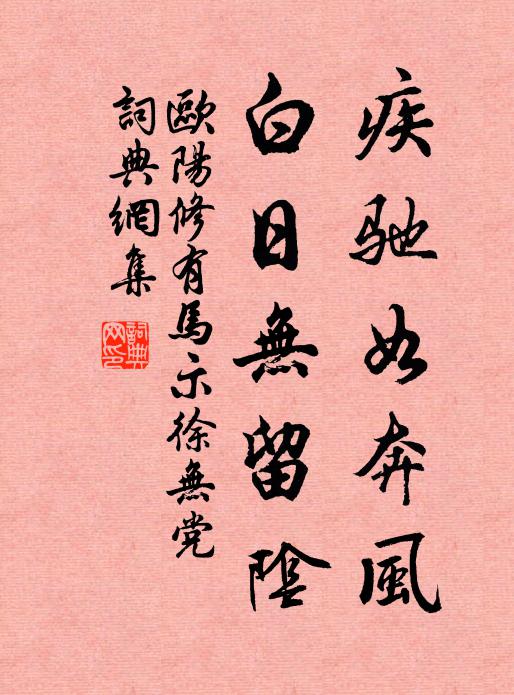 疾驰如奔風
白日無留陰
歐陽修有馬示徐無党
詞典網集
詞典網印